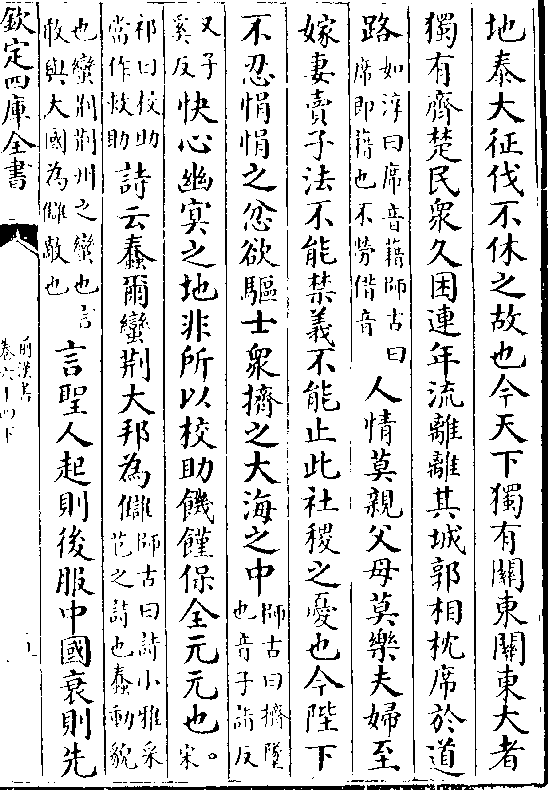 地泰大征伐不休之故也今天下獨有關東關東大者
獨有齊楚民衆久困連年流離離其城郭相枕席於道
路如淳曰席音藉師古曰席即藉也不勞借音人情莫親父母莫樂夫婦至
嫁妻賣子法不能禁義不能止此社稷之憂也今陛下
不忍悁悁之忿欲驅士衆擠之大海之中師古曰擠墜也音子詣反
又子奚反快心幽冥之地非所以校助饑饉保全元元也。宋
祁曰校助當作救助詩云蠢爾蠻荆大邦為讎師古曰詩小雅采芑之詩也蠢動貌
也蠻荆荆州之蠻也言敢與大國為讎敵也言聖人起則後服中國衰則先
欽定四庫全書
前漢書
卷六十四下